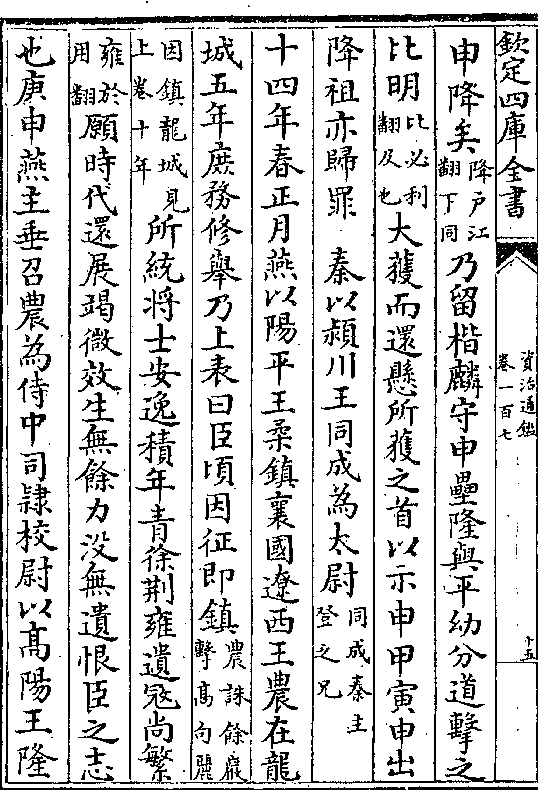 欽定四庫全書
資治通鑑
卷一百七
十五
申降矣降戸江翻下同乃留楷麟守申壘隆與平幼分道擊之
比明比必利翻及也大獲而還懸所獲之首以示申甲寅申出
降祖亦歸罪　秦以潁川王同成為太尉同成秦主登之兄
十四年春正月燕以陽平王柔鎮襄國遼西王農在龍
城五年庶務修舉乃上表曰臣頃因征即鎮農誅餘巖擊高句麗
因鎮龍城見上卷十年所統將士安逸積年青徐荆雍遺寇尚繁
雍於用翻願時代還展竭微效生無餘力没無遺恨臣之志
也庚申燕主垂召農為侍中司隸校尉以高陽王隆